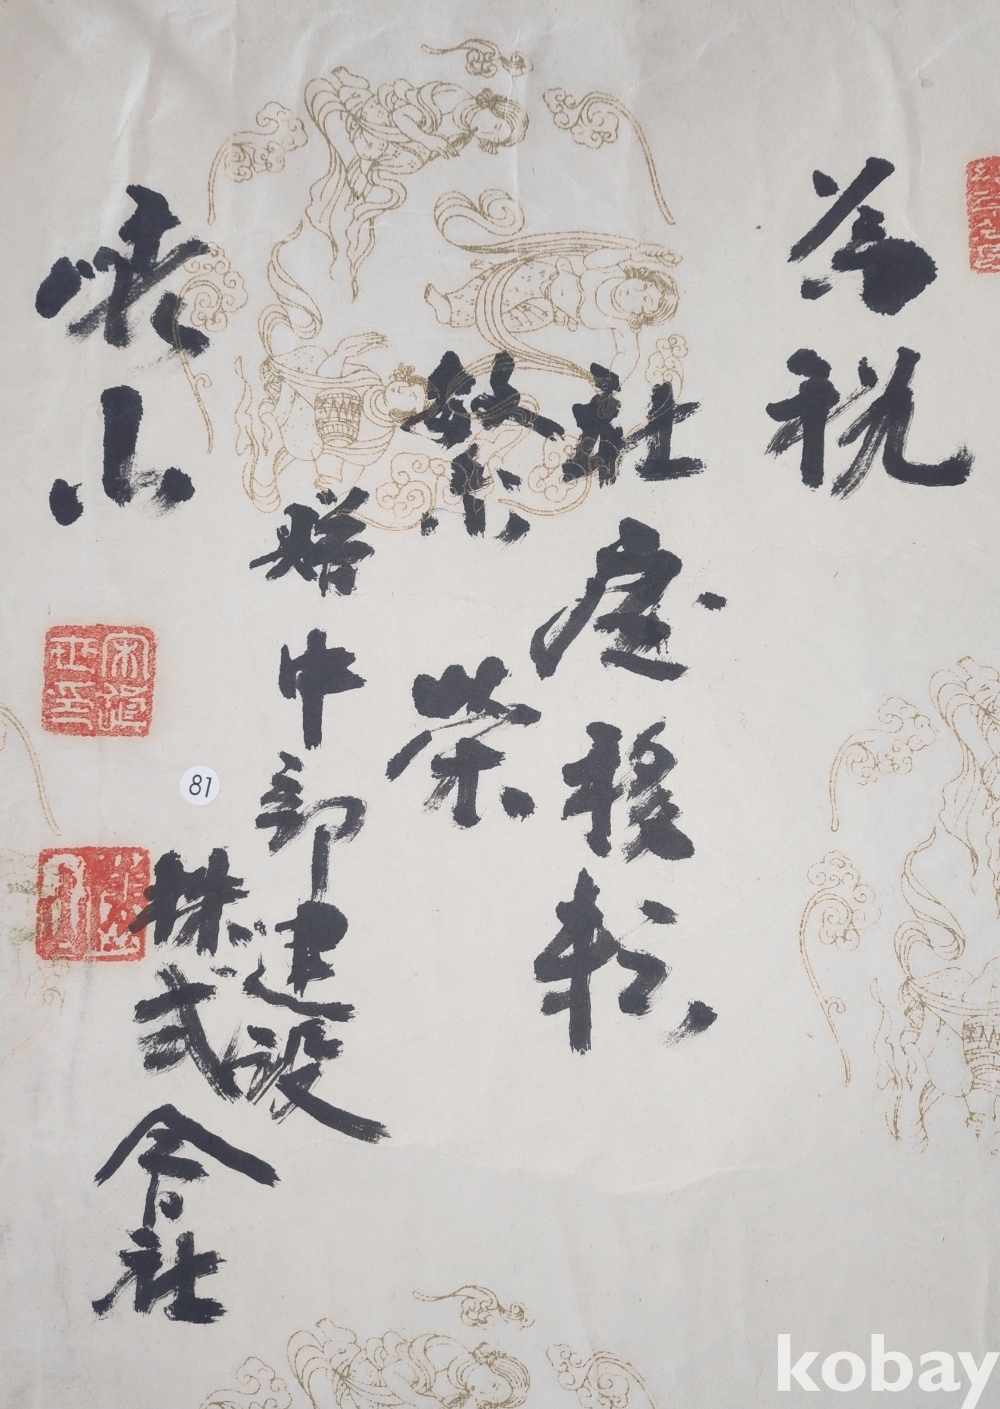 為祝
社屋移転
繁栄
贈中部建設
株式会社
山
81
kobay